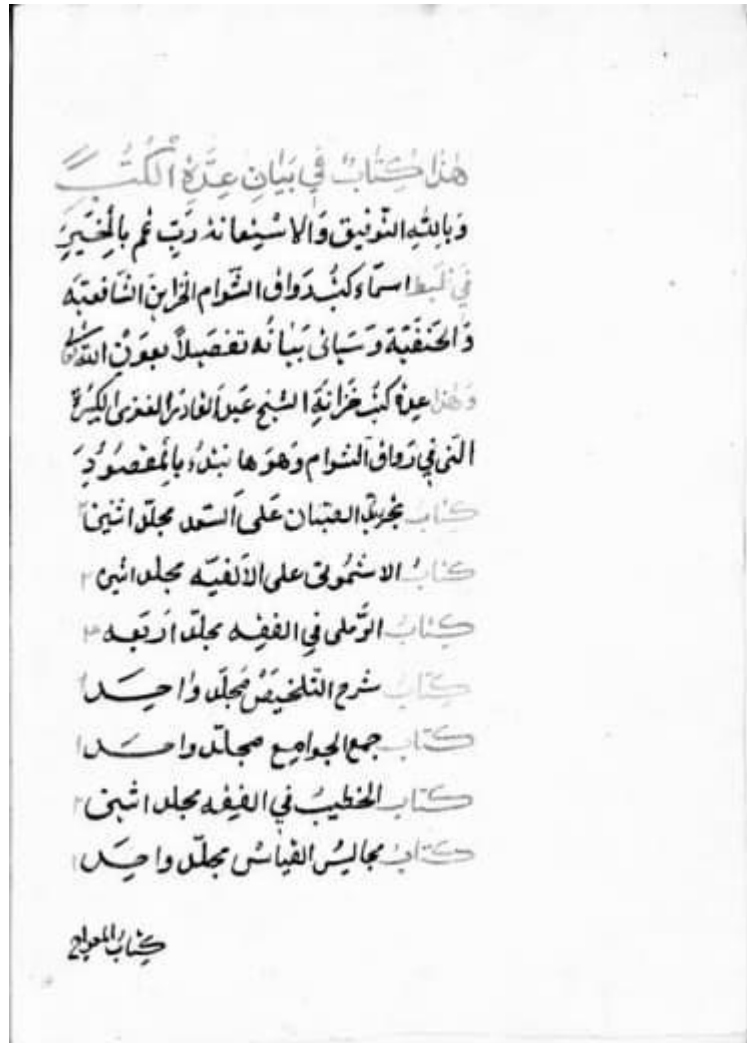 هٰذا كِتٰابٌ في بَيٰانِ عِدَّةِ الْكُتُبْ
وَبِاللهِ التّوفيق وَالاسْتِعانة رَبِّ تمم بالْخَيْرِ
في اسمآء كتب رَواق الشّوام الخزاين الشّافعيّه
وَالحَنَفيّة وَسَيأتى بَيٰانُه تفصَيلاً بعوَن اللهِ
وَهٰذا عِدة كتب خَزانةِ الشيخ عَبد القادر الغزى الكبيرة
التى في رَواق الشوام وَهوَ ها نبدُء بالمقصوُدِ
كتابُ تجريد العبَان عَلى السّعد مجلّد اثنين ٢
كتابُ الاشموُنى على الألفيّه مجلد اثين ٢
كِتابُ الرَّملى في الفقه مجلّد اَربَعه ٤
كِتابُ شرح التّلخيصْ مُجلّد وٰاحِد ١
كتابُ جمع الجوامِع مجلّد واحد ١
كتاب الخطيبُ في الفِقه مجلد اثنين ٢
كتابُ مجاليسُ القياسْ مجلّد واحِد ١
كِتابُ المعراج